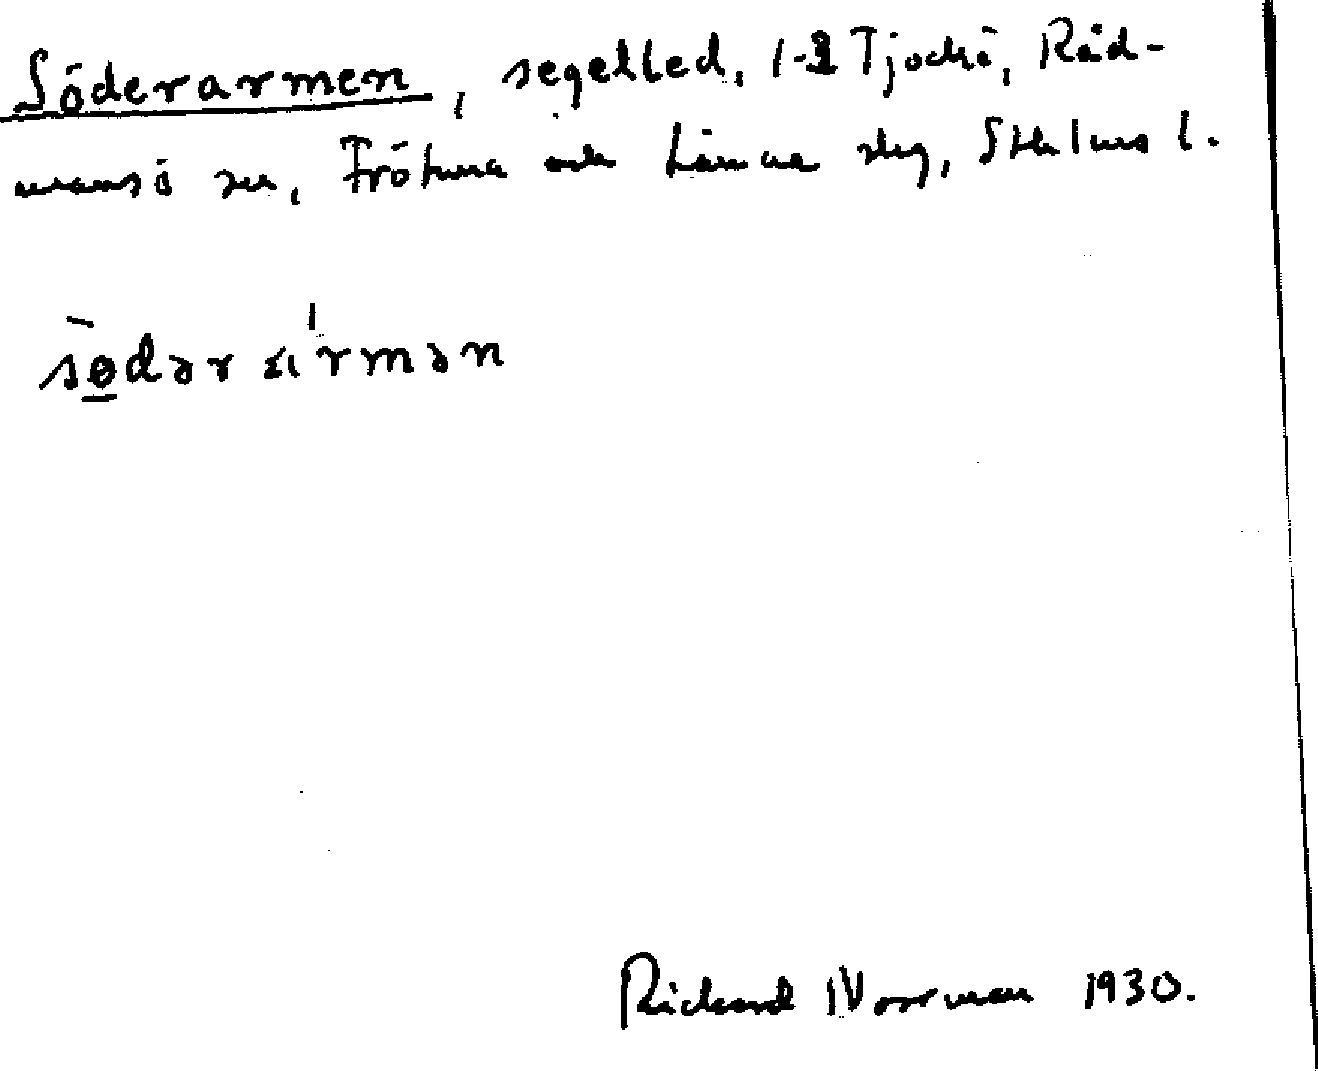 Söderarmen, segelled, 1-2 Tjockö, Råd-
mansö sn, Frötuna och Länna slg, Sthlms l.
sødər ármən
Rickard Norrman 1930.